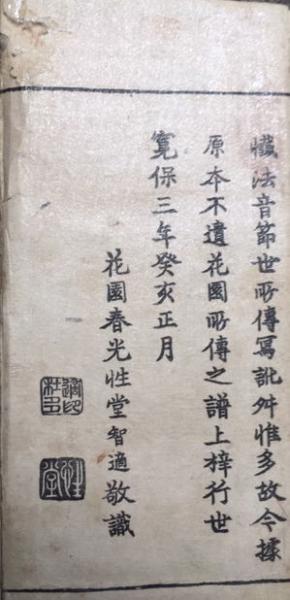 懴法音節世所傳寫訛舛惟多故今據
原夲不遺花園所傳之譜上梓行世
寛保三年癸亥正月
花園春光性堂智適敬識